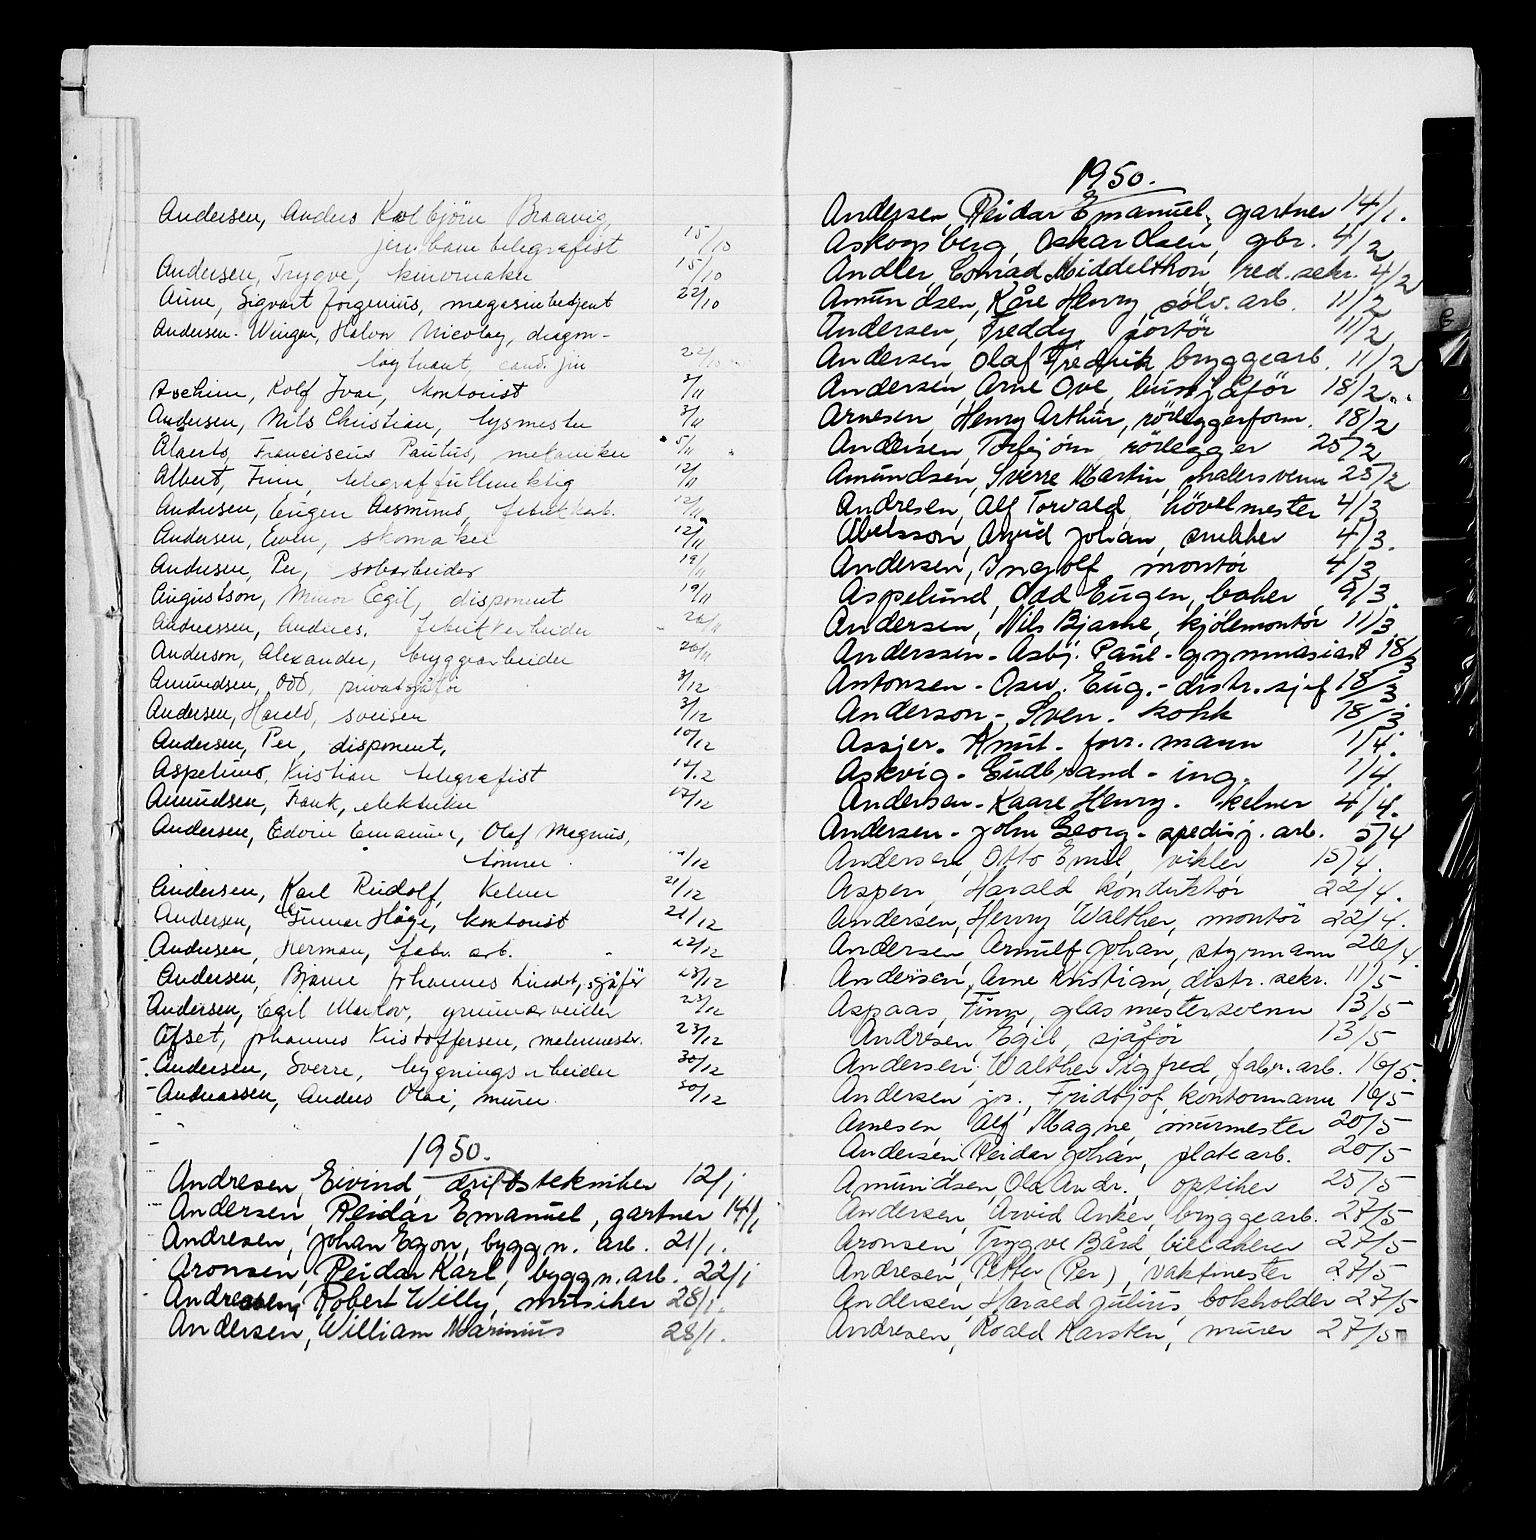 Andersen, Anders Kolbjörn Braavig,
jernbanetelegrafist 15/10
Andersen, Trygve, kinomaskin 15/10
Aune, Sigvart Jörgenius, magasinbetjent 22/10
Andersen-Winger, Halvor Nicolay,
cand. jur 22/10
Aschim, Rolf Ivar, kontorist 3/11
Andersen, Nils Christian, lysmester 3/11
Alberts, Franciscus Paulus, mekaniker 5/11
Albert, Finn, telegraffullmektig 12/11
Andersen, Eugen Aasmund, fabrikkarb. 12/11
Andersen, Even, skomaker 12/11
Andersen, Per, 19/11
Augustson, Egil, disponent 19/11
Andreassen, Anders, fabrikkarbeider 26/11
Anderson, Alexander, bryggearbeider 26/11
Amundsen, Odd, privatsjåför 3/12
Andersen, Harald, sveiser 3/12
Andersen, Per, disponent, 10/12
Aspelund, Kristian telegrafist
Amundsen, Frank, elektriker 17/12
Andersen, Edvin Emanuel, Olaf Magnus,
tömrer /12
Andersen, Karl Rudolf, kelner 21/12
Andersen, Gunnar Håge, kontorist 21/12
Andersen, Herman, fabr. arb. 22/12
Andersen, Bjarne Johannes Lindst, sjåför 23/12
Andersen, Egil Markov, grunnarbeider 23/12
Öfset, Johannes Kristoffersen, malermester 23/12
Andersen, Sverre, bygningsarbeider 30/12
Andreassen, Anders Olai, murer 30/12
1950.
Andresen, Eivind, driftstekniker 12/1
Andersen, Reidar Emanuel, gartner 14/1
Andresen, Johan Egon, byggn. arb. 21/1.
Aronsen, Reidar Karl, byggn. arb. 22/1
Andreassen, Robert Willy, musiker 28/1.
Andersen, William Marinius 28/1.
1950.
Andersen, Reidar Emanuel, gartner 14/1.
Askogsberg, Oskar Olsen, gbr. 4/2
Andler, Conrad Middelthon red.sekr. 4/2
Amundsen, Kåre Henry, sölv. arb. 11/2
Andersen, Freddy, portör 11/2
Andersen, Olaf Fredrik, bryggearb. 11/2
Andersen, Arne Ove, bussjåför 18/2.
Arnesen, Henry Arthur, rörleggerform. 18/2
Andersen, Torbjörn, rörlegger 25/2
Amundsen, Sverre Martin, malersvenn 25/2
Andresen, Alf Torvald, hövelmester 4/3
Abelsson, Arvid Johan, snekker 4/3.
Andersen, Ingolf, montör 4/3
Aspelund, Odd Eugen, baker 9/3.
Andersen, Nils Bjarne, kjölemontör 11/3
Anderssen - Asbj. Paul - gymnasiast 18/3
Antonsen - Osw. Eug. - distr. sjef 18/3.
Anderson - Sven. kokk 18/3
Assjer. Knut - forr. mann 1/4.
Askvig - Gudbrand - ing. 1/4
Andersen - Kaare Henry. kelner 4/4.
Andersen - John Georg - spedisj. arb. 5/4
Andersen, Otto Emil, vikler 15/4.
Aspen, Harald konduktör 22/4.
Andersen, Henry Walther, montör 22/4.
Andersen, Arnulf Johan, styrmann 26/4.
Andersen, Arne Kristian, distr. sekr. 11/5
Aspaas, Finn, glasmestersvenn 13/5
Andresen Egil, sjåför 13/5
Andersen, Walther Sigfred, fabr. arb. 16/5.
Andersen jr., Fridtjof, kontormann 16/5
Arnesen, Alf Magne, murmester 20/5
Andersen, Reidar Johan, platearb. 20/5
Amundsen, Ole Andr., optiker 25/5
Andersen, Arvid Anker, bryggearb. 27/5
Aronsen, Trygve Bård, billakerer 27/5
Andresen, Petter (Per), vaktmester 27/5
Andersen, Harald Julius, bokholder 27/5
Andresen, Roald Karsten, murer 27/5